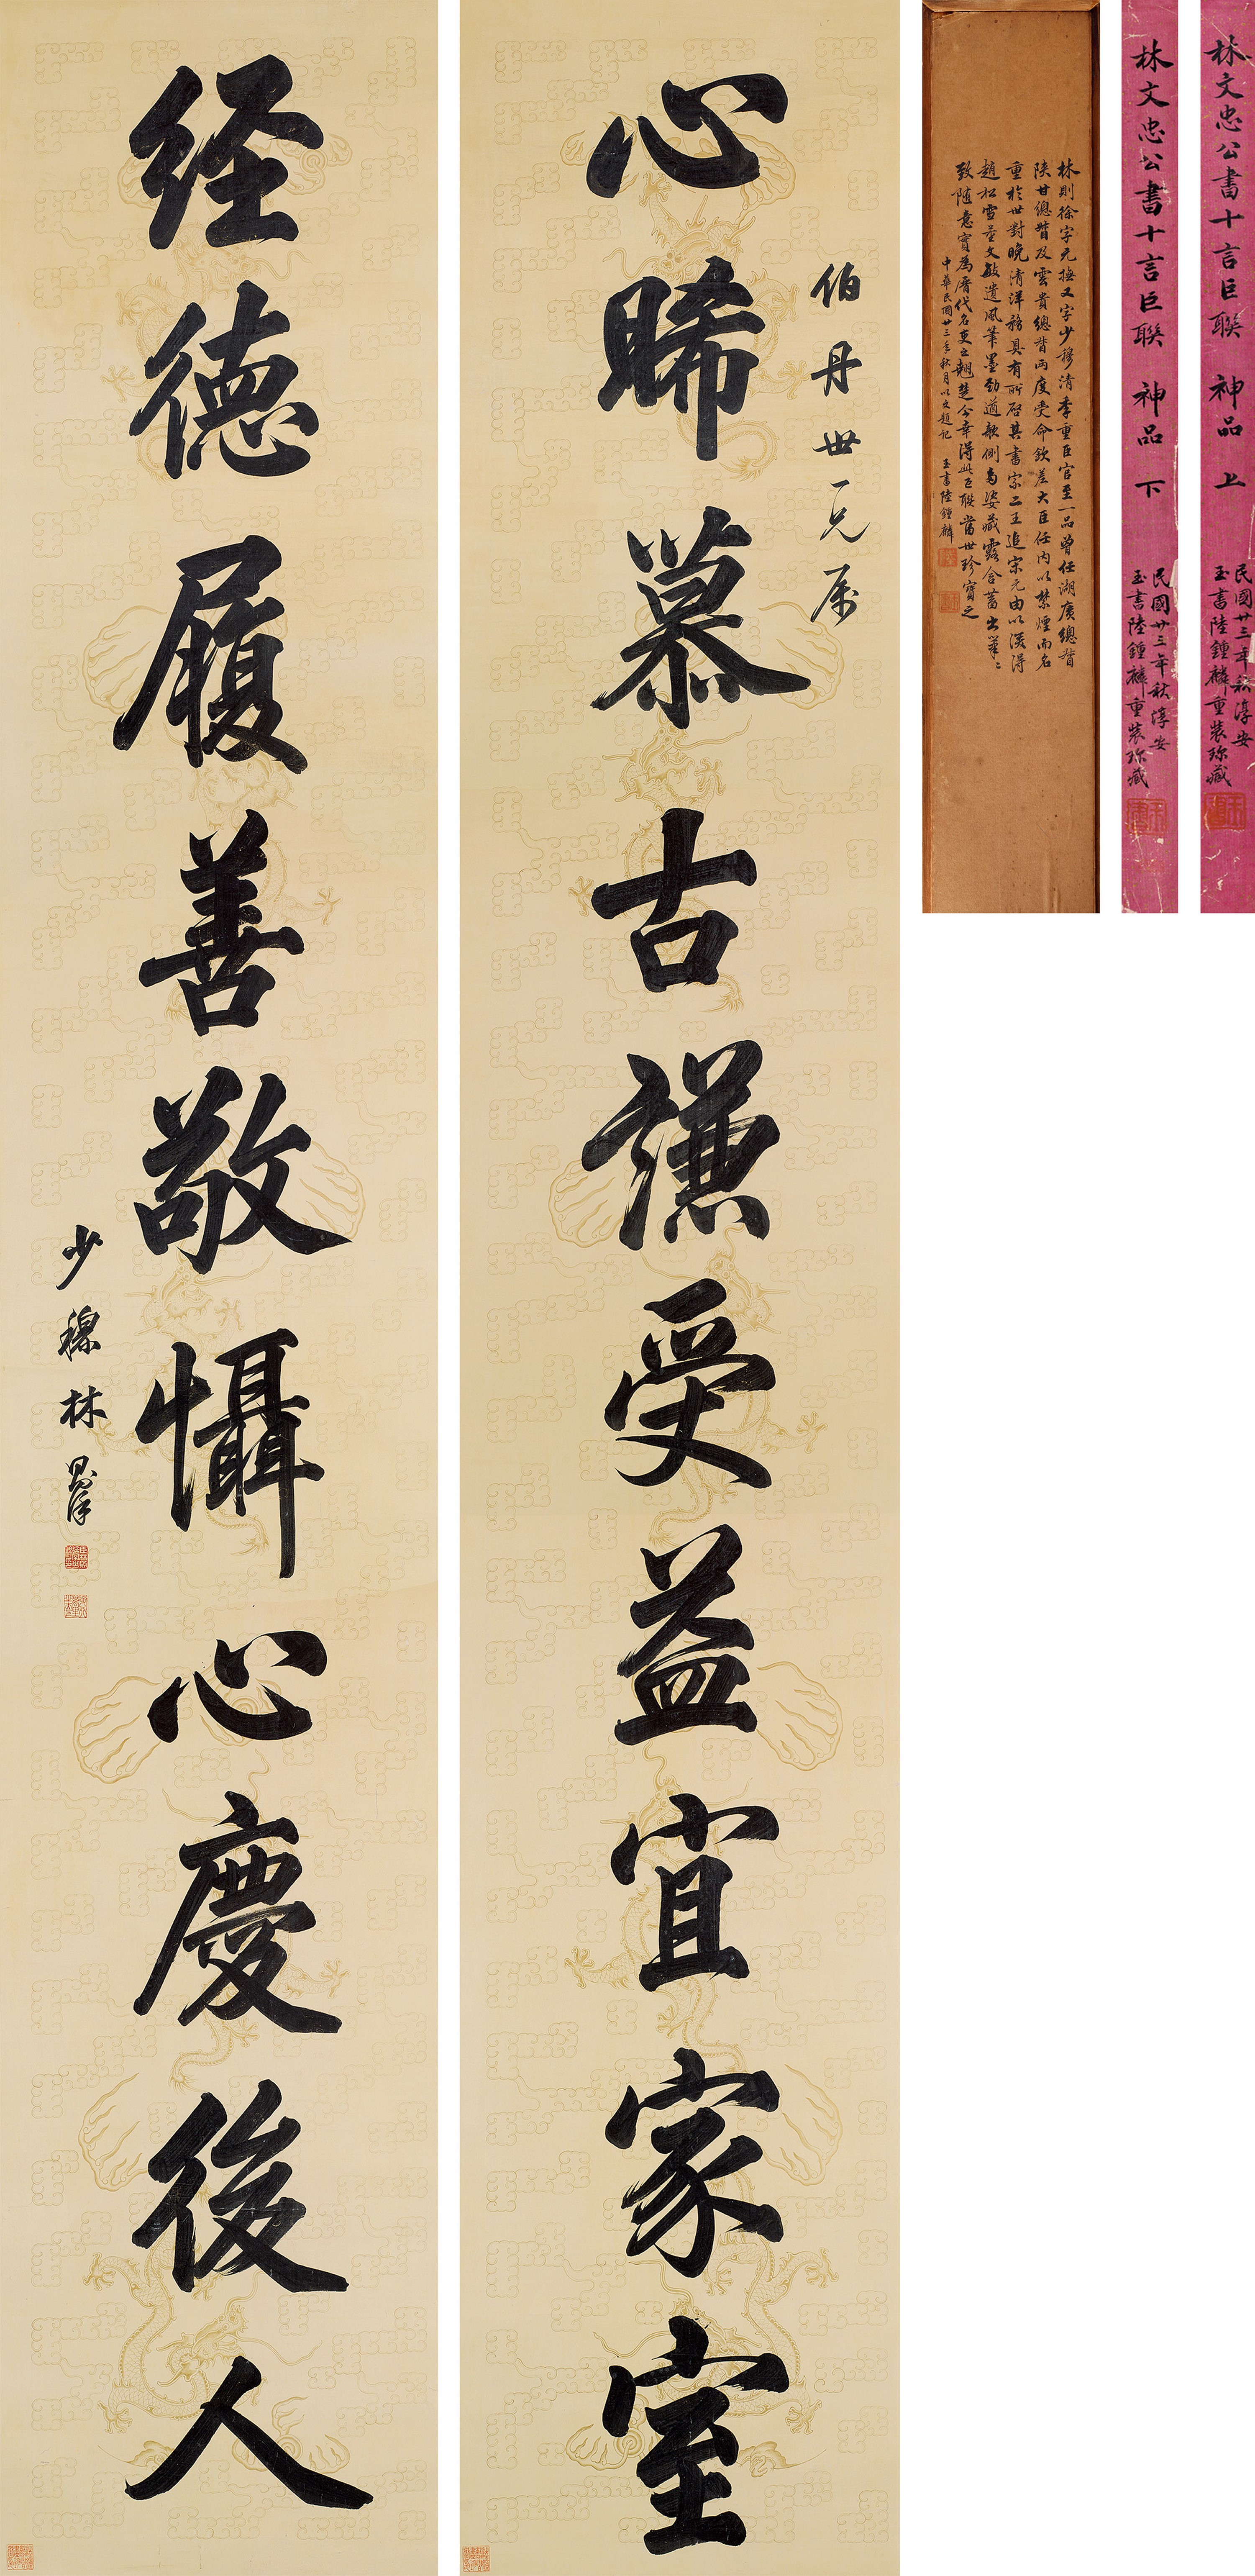 林文忠公書十言巨聯 神品 上
民國廿三年秋淳安
玉書陸鍾麟重裝珍藏
林文忠公書十言巨聯 神品 下
民國廿三年秋淳安
玉書陸鍾麟重裝珍藏
林則徐字元撫又字少穆清季重臣官至一品曾任湖廣總督
陝甘總督及雲貴總督兩度受命欽差大臣任內以禁煙而名
重於世對晚清洋務具有所啓其書宗二王追宗元由以溪得
趙松雪董文敏遺風筆墨勁遒欹側為姿藏露含蓄出筆
致隨意實為唐代名吏之翹楚今幸得此巨聯當世珍寶之
中華民國廿三年秋月以文題記 玉書陸鍾麟
伯丹世兄屬
心睎慕古謙受益宜家室
经德履善敬懾心慶後人
少穆林則徐